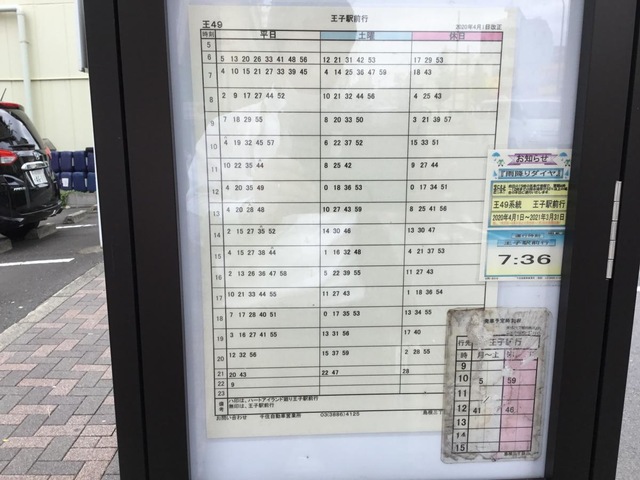 王49
王子駅前行
2020年4月1日改正
時刻 平日 土曜 休日
5
6 5 13 20 26 33 41 48 56 12 21 31 42 53 17 29 53
7 4 10 15 21 27 33 39 45 4 14 25 36 47 59 18 43
8 2 9 17 27 44 52 10 21 32 44 56 4 25 43
9 7 18 29 55 8 20 33 50 3 21 39 57
10 4 19 32 45 57 6 22 37 52 15 33 51
11 10 22 35 44 8 25 42 9 27 44
12 4 20 35 49 0 18 36 53 0 17 34 51
13 4 20 28 48 10 27 43 59 8 25 41 56
14 2 15 27 35 52 14 30 46 13 30 47
15 4 13 27 38 44 1 16 32 48 4 21 37 53
16 2 13 26 36 47 58 5 22 39 55 11 27 43
17 10 22 33 44 55 11 27 43 1 18 36 54
18 7 17 28 40 51 0 17 35 53 13 34 55
19 3 16 27 41 55 13 31 56 17 40
20 12 32 56 15 37 59 2 28 55
21 20 43 22 47 28
22 9
23
備考 ハ印は、ハートアイランド廻り王子駅前行
無印は、王子駅前行
お問い合わせ 千住自動車営業所 03(3888)4125
お知らせ
『雨降りダイヤ』
王49系統 王子駅前行
2020年4月1日～2021年3月31日
王子駅前行
7:36
行先 王子駅行
時 月～土
9
10 5 59
11
12 41 46
13
14
15